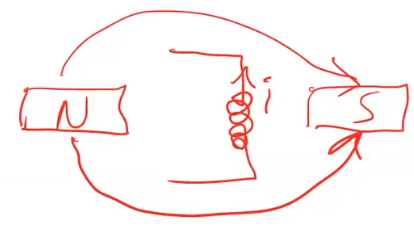 N
i
S